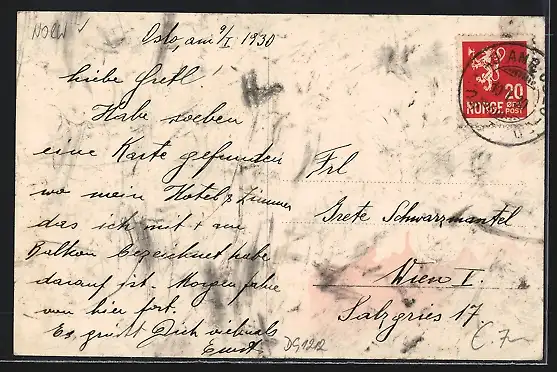 NORW
Oslo, am 9/I 1930
Liebe Gretl.
Habe soeben
eine Karte gefunden
wo mein Hotel & Zimmer
das ich mit + am
Balkon bezeichnet habe
darauf ist. Morgen fahre
von hier fort.
Es grüßt Dich vielmals
Ernst
Frl
Grete Schwarzmantel
Wien I.
Salzgries 17
20
NORGE ØRE
POST
DG1212